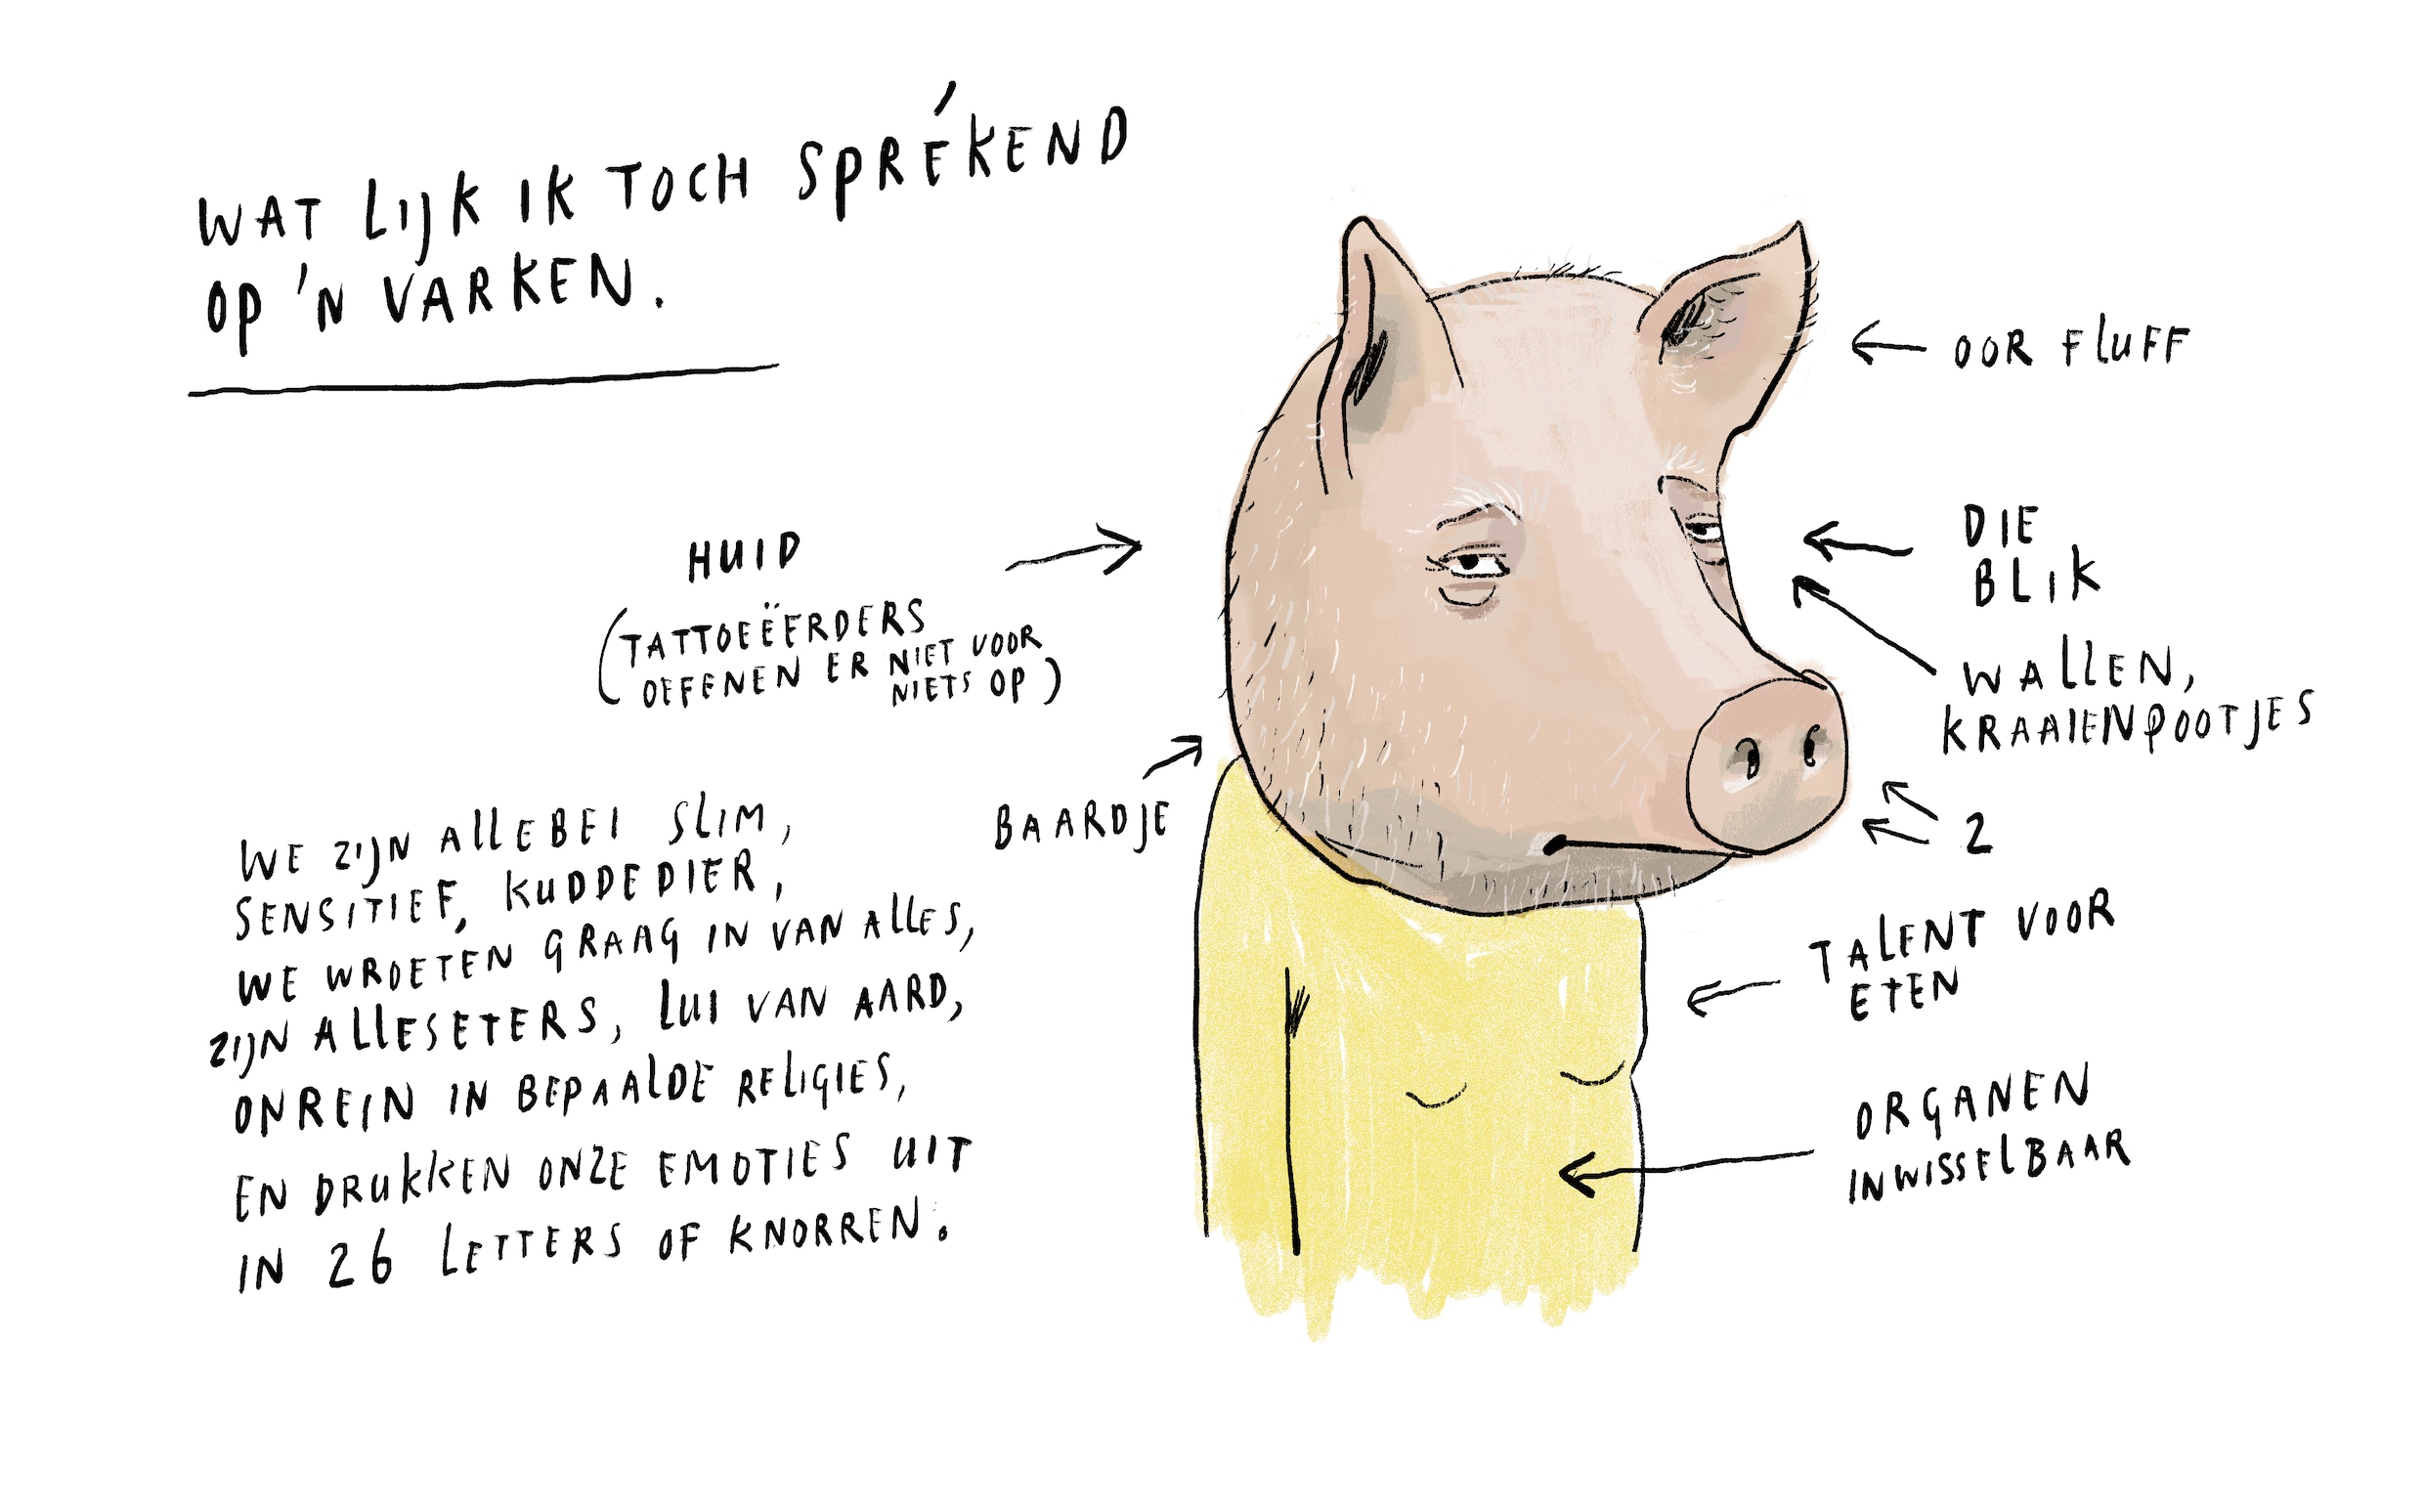 WAT LIJK IK TOCH SPRÉKEND
OP 'N VARKEN.
OOR FLUFF
HUID
(TATTOEËERDERS
OEFENEN ER NIET VOOR
NIETS OP)
DIE
BLIK
WALLEN,
KRAAIENPOOTJES
BAARDJE
2
WE ZIJN ALLEBEI SLIM,
SENSITIEF, KUDDEDIER,
WE WROETEN GRAAG IN VAN ALLES,
ZIJN ALLESETERS, LUI VAN AARD,
ONREIN IN BEPAALDE RELIGIES,
EN DRUKKEN ONZE EMOTIES UIT
IN 26 LETTERS OF KNORREN.
TALENT VOOR
ETEN
ORGANEN
INWISSELBAAR